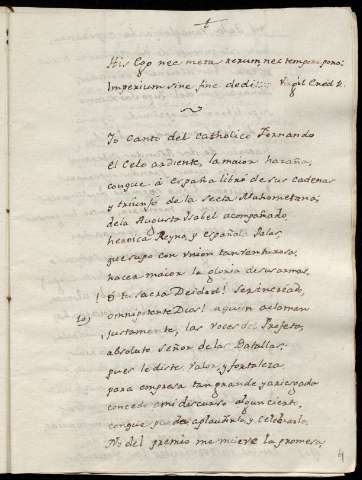 †
His Ego nec metas rerum, nec tempora pono:
Imperium sine fine dedi::::: Virgil Eneid 1.
Yo Canto del Catholico Fernando
el Celo ardiente, la maior hazaña,
conque à España libró de sus cadenas
y triunfó de la Secta Mahometana;
dela Augusta Isabel acompañado,
heroica Reyna, y Española Palas,
que supo con union tan venturosa,
hacer maior la gloria de sus armas,
¡O tu sacra Deidad! Ser increado,
10) omnipotente Dios! aquien aclaman
justamente, las Voces de Profeta,
absoluto Señor de las Batallas;
pues le diste valor, y fortaleza,
para empresa tan grande y arriesgada
concede ami discurso algun ciento,
conque pueda aplaudirla, y Celebrarla.
No del premio me mueve la promesa
4